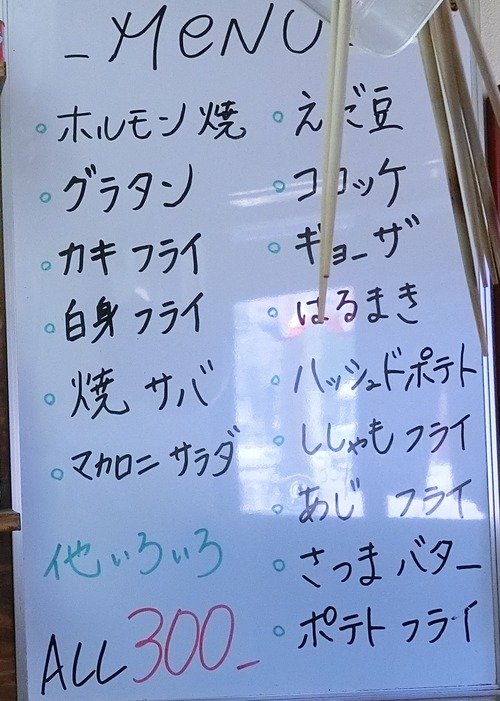 - MENU -
ホルモン焼
グラタン
カキフライ
白身フライ
焼サバ
マカロニサラダ
他いろいろ
ALL 300-
えだ豆
コロッケ
ギョーザ
はるまき
ハッシュドポテト
ししゃもフライ
あじフライ
さつまバター
ポテトフライ